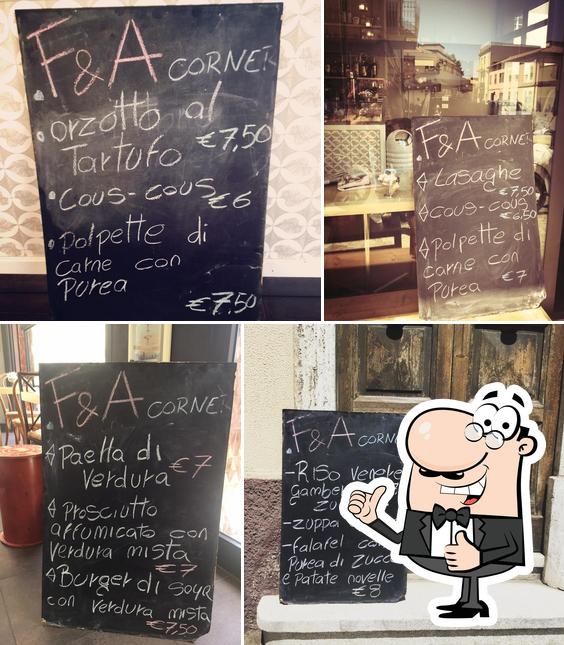 F&A CORNER
• orzotto al
Tartufo €7,50
• Cous-cous €6
• Polpette di
carne con
Purea
€7,50
F&A CORNER
Lasaghe
€7,50
Cous-cous
€6,50
Polpette di
carne con
Purea €7
F&A CORNER
Paella di
Verdura €7
Prosciutto
affumicato con
verdura mista
€7
Burger di soya
con verdura mista
€7,50
F&A CORN
-Riso venere
gamber
zu
-zuppa
-falafel co
Purea di zucc
e Patate novelle
€8